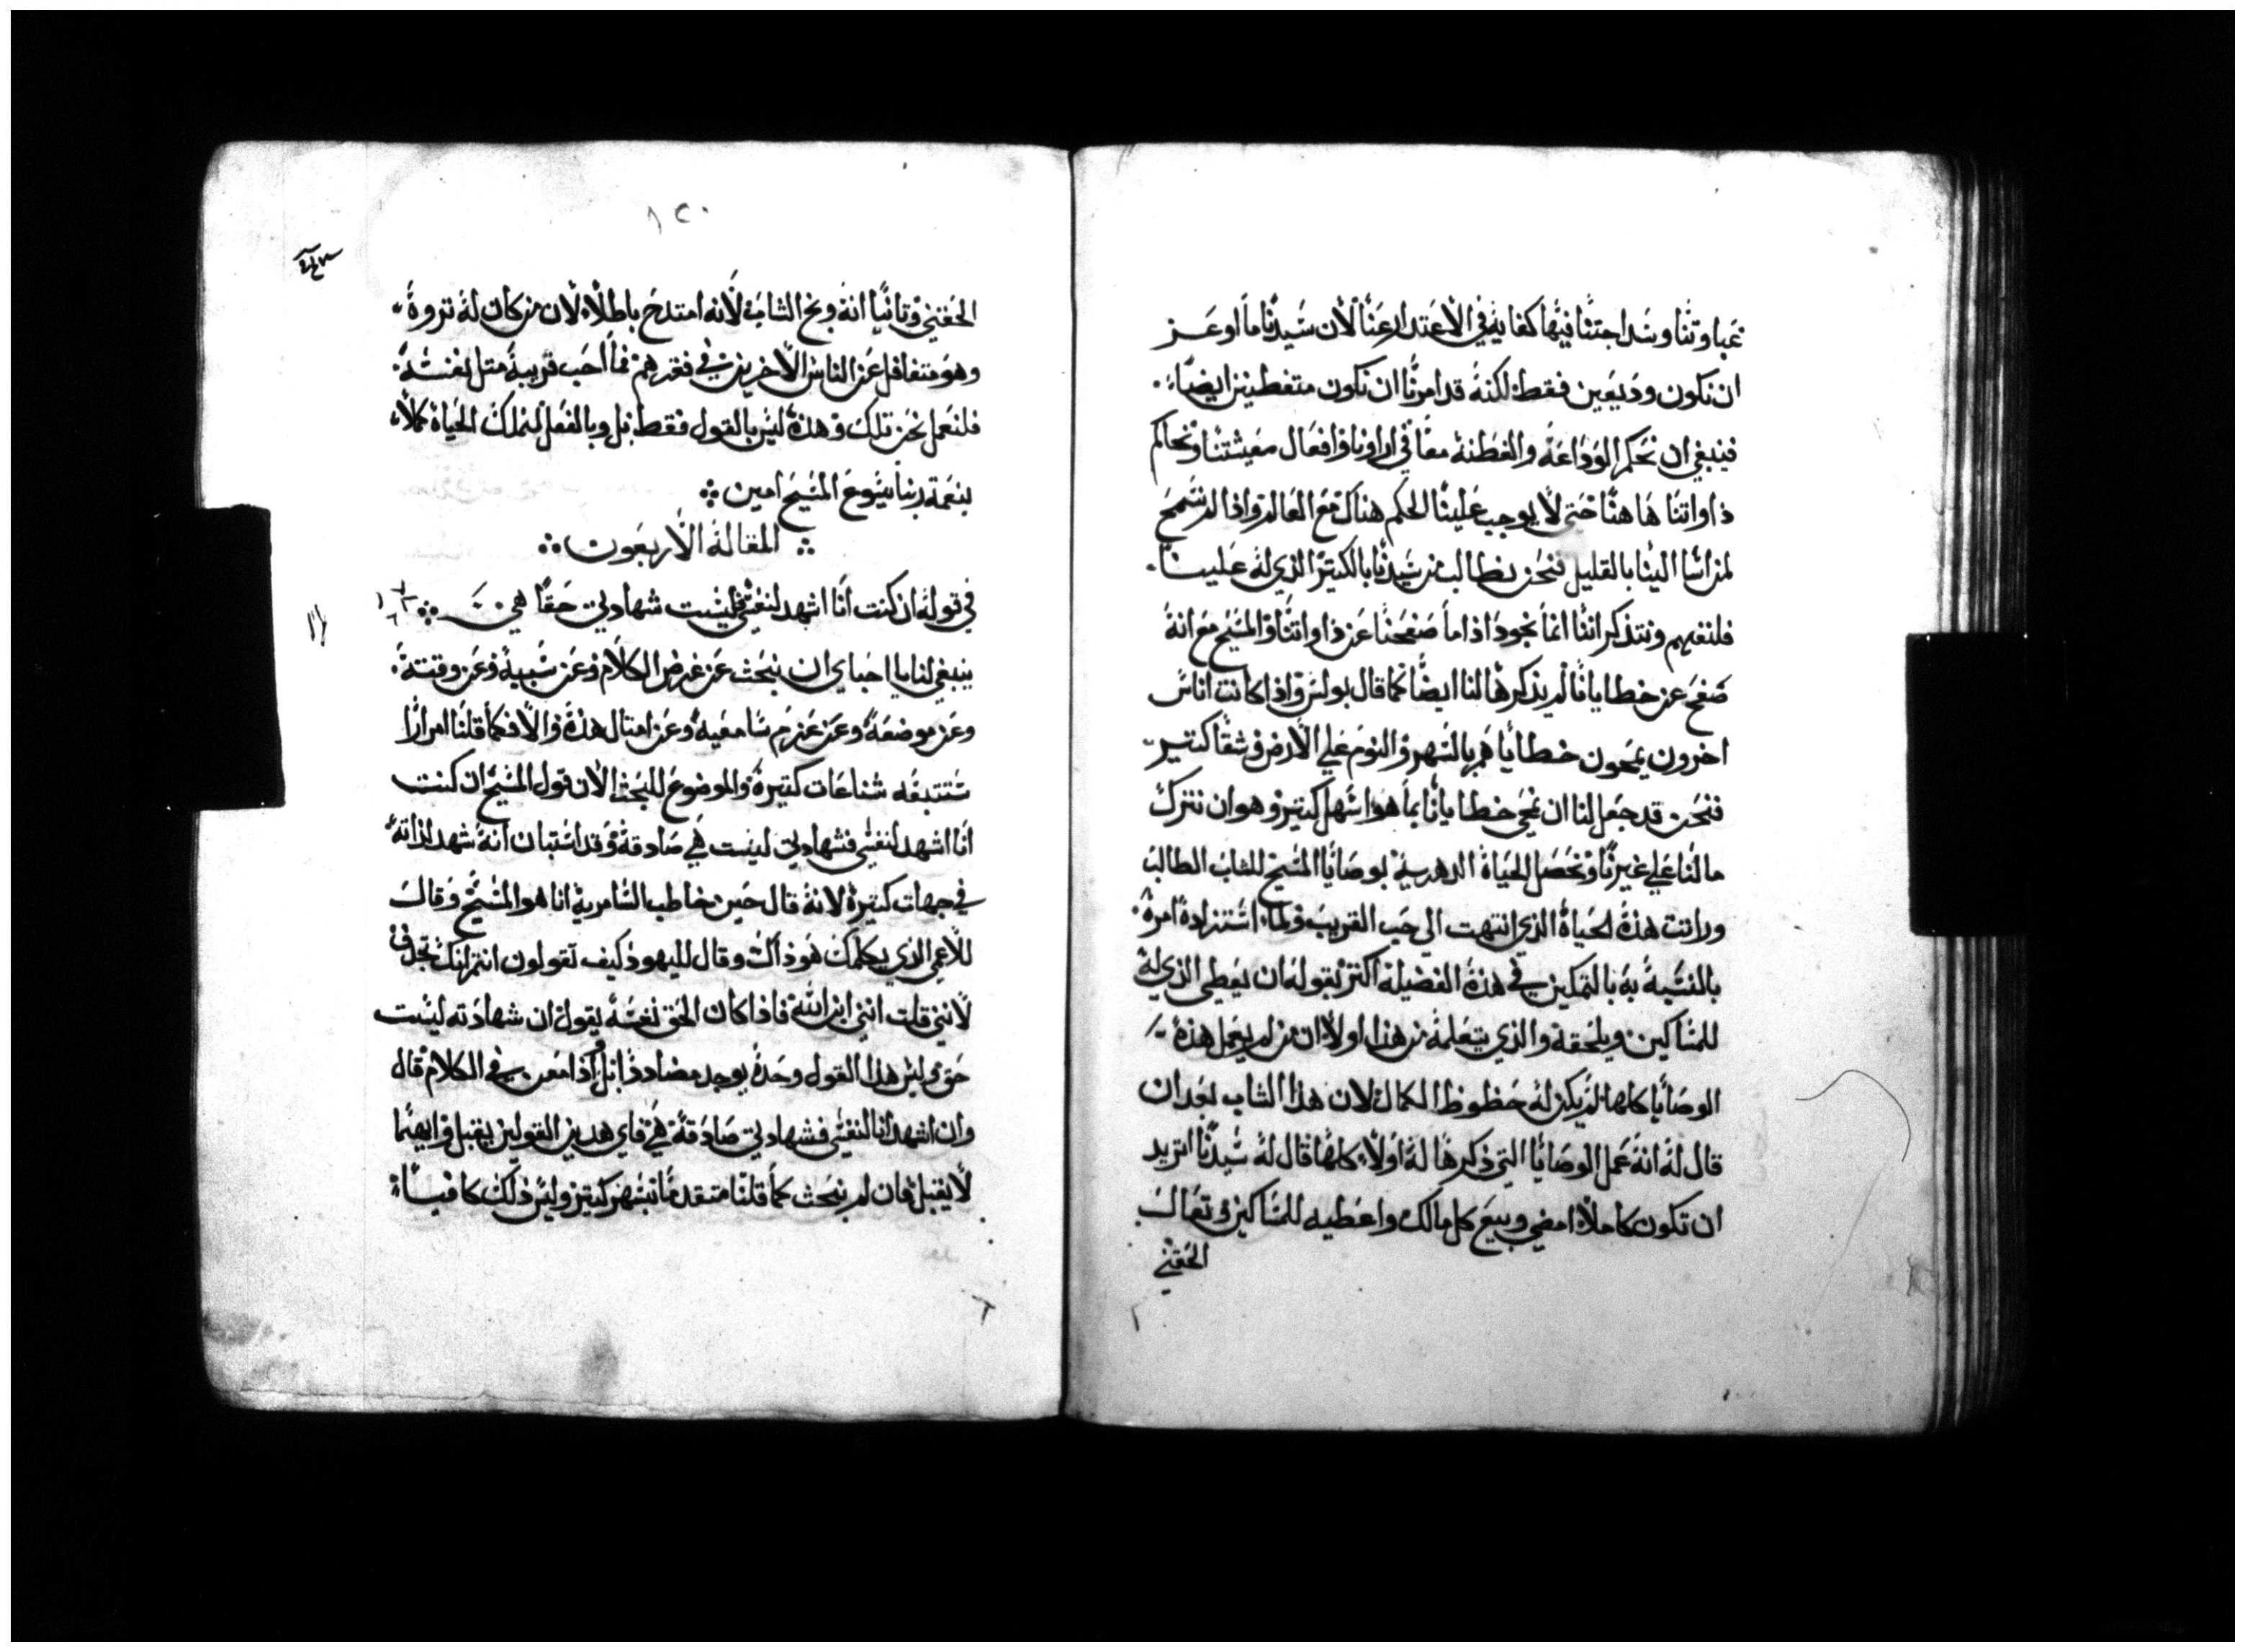 غباوتنا وسداجتنا فيها كفايه في الاعتدار عنا لان سيدنا ما اوعز
ان نكون وديعين فقط لكنه قد امرنا ان نكون متفطنين ايضاً
فينبغي ان نحكم الوداعة والفطنه معاً في اراونا وافعال معيشتنا ونحاكم
ذاواتنا هاهنا حتى لا يوجب علينا الحكم هناك مع العالم واذا لم نسمح
لمن اسا الينا بالقليل فنحن نطالب من سيدنا بالكتير الذي له علينا
فلنتفهم ونتذكر اننا انما نجود اذا ما صفحنا عن ذاواتنا والمسيح مع انه
صفح عن خطايانا لم يذكرها لنا ايضاً كما قال بولس واذا كانت اناس
اخرون يمحون خطاياهم بالسهر والنوم علي الارض وشقا كتير
فنحن قد جعل لنا ان نمحى خطايانا بما هو اسهل كتير وهو ان نترك
مالنا علي غيرنا ونحصل الحياة الدهرية بوصايا المسيح للشاب الطالب
وراتت هذه الحياة الذي انتهت الي حب القريب ولما استزاده امره
بالنسبة به بالتمكين في هذه الفضيلة اكتر بقوله ان يعطي الذي له
للمساكين ويلحقه والذي يتعلمه من هذا اولا ان من لم يعمل هذه
الوصايا كلها لم يكن له حظوظ الكمال لان هذا الشاب بعد ان
قال له انه عمل الوصايا التي ذكرها له اولا كلها قال له سيدنا اتريد
ان تكون كاملا امضي وبيع كل مالك واعطيه للمساكين وتعالَ
الحقني
١٢٠
الحقني وتانياً انه وبخ الشاب لانه امتدح باطلا لان من كان له تروة
وهو متغافل عن الناس الاخرين في فقرهم فما احب قريبه متل نفسه
فلنعمل نحن تلك وهذه ليس بالقول فقط بل وبالفعل لنملك الحياة كملا
بنعمة ربنا يسوع المسيح امين
المقالة الاربعون
في قوله ان كنت انا اشهد لنفسي فليست شهادتي حقاً هي
ينبغي لنا يا احباي ان نبحث عن غرض الكلام وعن سببه وعن وقته
وعن موضعه وعن عزم سامعيه وعن امتال هذه والا فكما قلنا مراراً
ستتبعه شناعات كتيرة والموضوع للبحث الان قول المسيح ان كنت
انا اشهد لنفسي فشهادتي ليست هي صادقة وقد استبان انه شهد لذاته
في جهات كتيرة لانه قال حين خاطب السامرية انا هو المسيح وقال
للاعمي الذي يكلمك هو ذاك وقال لليهود كيف تقولون انتم انك تجدف
لانني قلت انني ابن الله فاذا كان الحق نفسه يقول ان شهادته ليست
حق وليس هذا القول وحده يوجد مضاددا بل اذا معن في الكلام قال
وان اشهد انا لنفسي فشهادتي صادقة هي فاي هدين القولين يقبل وايهما
لا يقبل فان لم نبحث كما قلنا متقدماً نبتهر كتير وليس ذلك كافياً